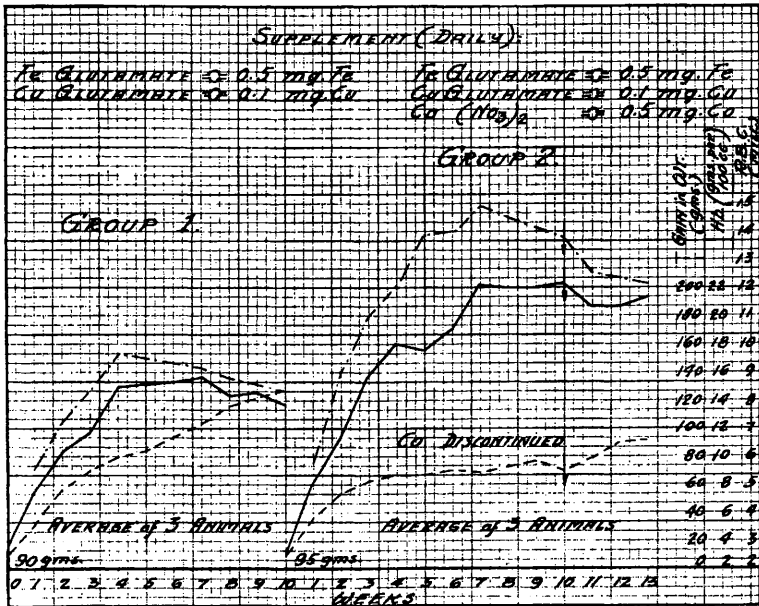 SUPPLEMENT (DAILY):
Fe GLUTAMATE ≎ 0.5 mg. Fe
Cu GLUTAMATE ≎ 0.1 mg. Cu
Fe GLUTAMATE ≎ 0.5 mg. Fe
Cu GLUTAMATE ≎ 0.1 mg. Cu
Co (NO3)2 ≎ 0.5 mg. Co
GROUP 1.
GROUP 2.
GAIN in WT. (gms.)
Hb. (gms. per 100 cc)
R.B.C.
15
14
13
200 22 12
180 20 11
160 18 10
140 16 9
120 14 8
100 12 7
80 10 6
60 8 5
40 6 4
20 4 3
0 2 2
Co DISCONTINUED
AVERAGE of 3 ANIMALS
AVERAGE of 3 ANIMALS
90 gms.
95 gms.
0 1 2 3 4 5 6 7 8 9 10 1 2 3 4 5 6 7 8 9 10 11 12 13
WEEKS